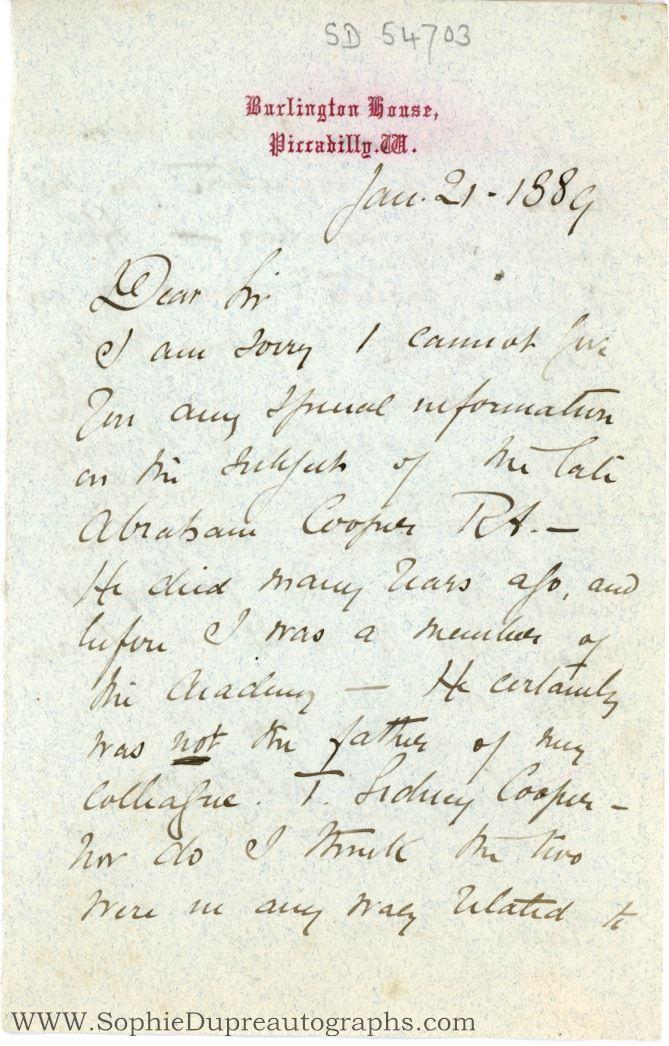 SD 54703
Burlington House,
Piccadilly. W.
Jan. 21 - 1889
Dear Sir
I am sorry I cannot give
you any special information
on the subject of the late
Abraham Cooper RA. —
He died many years ago, and
before I was a member of
the Academy — He certainly
was not the father of my
colleague. T. Sidney Cooper —
nor do I think the two
were in any way related to
WWW.SophieDupreautographs.com